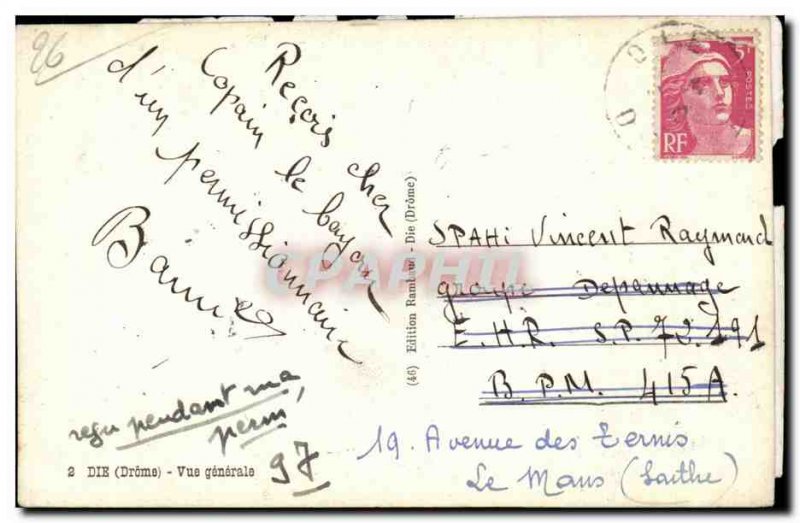 96
Reçois cher
Copain le bayou
d'un permissionnaire
reçu pendant ma
perm,
97
2 DIE (Drôme) - Vue générale
(46) Edition Rambaud - Die (Drôme)
CPAPHIL
5F
POSTES
RF
DIE
SPAHI Vincent Raymond
groupe Depannage
E.H.R. S.P. 72.191
B.P.M. 415A.
19. Avenue des Ternis
Le Mans (Sarthe)